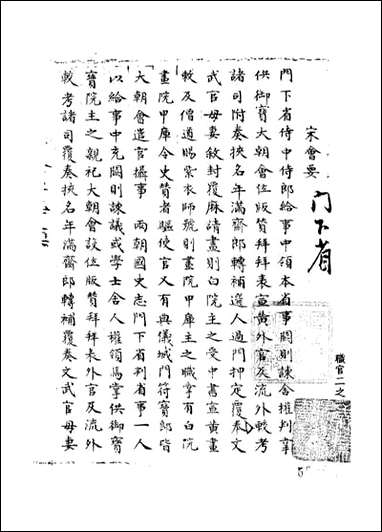 宋會要
門下省
職官二之
門下省侍中侍郎給事中領本省事闕則諫舍權判掌
供御寶大朝會位版贊拜拜表宣黃外官及流外較考
諸司附奏挾名年滿齋郎轉補選人過門押定覆奏文
武官母妻敘封覆麻請畫則白院主之受中書宣黃畫
敕及僧道賜紫衣師號則畫院甲庫主之職掌有白院
畫院甲庫令史贊者驅使官又有典儀城門符寶郎皆
大朝會遣官攝事 兩朝國史志門下省判省事一人
以給事中充闕則諫議或學士舍人權領焉掌供御寶
寶院主之親祀大朝會設位版贊拜拜表外官及流外
較考諸司覆奏挾名年滿齋郎轉補覆奏文武官母妻